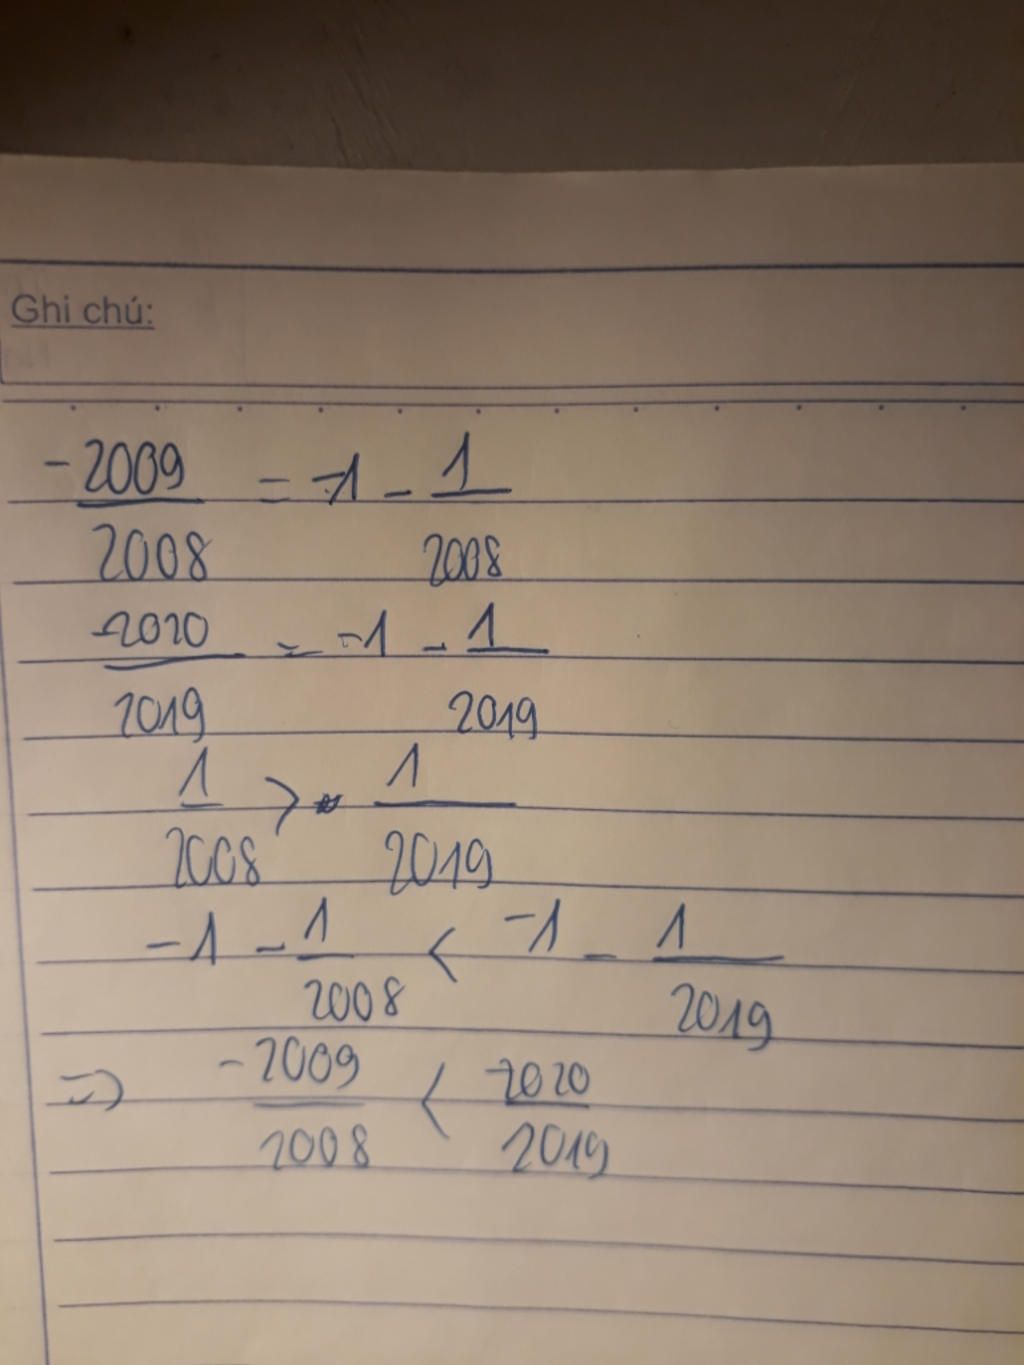 Ghi chú:
-2009/2008 = -1 - 1/2008
-2020/2019 = -1 - 1/2019
1/2008 > 1/2019
-1 - 1/2008 < -1 - 1/2019
=> -2009/2008 < -2020/2019